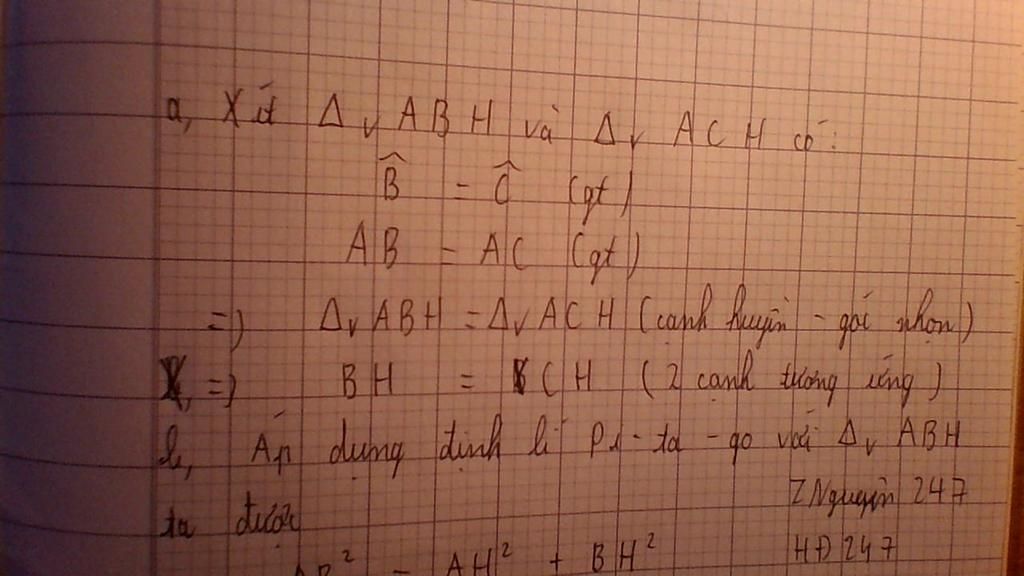 a, Xét Δv ABH và Δv ACH có:
B̂ = Ĉ (gt)
AB = AC (gt)
=) Δv ABH = Δv ACH (cạnh huyền - góc nhọn)
=) BH = CH (2 cạnh tương ứng)
b, Áp dụng định lí Pi-ta-go với Δv ABH
ta được
ZNguyễn 247
HĐ 247
AB² = AH² + BH²